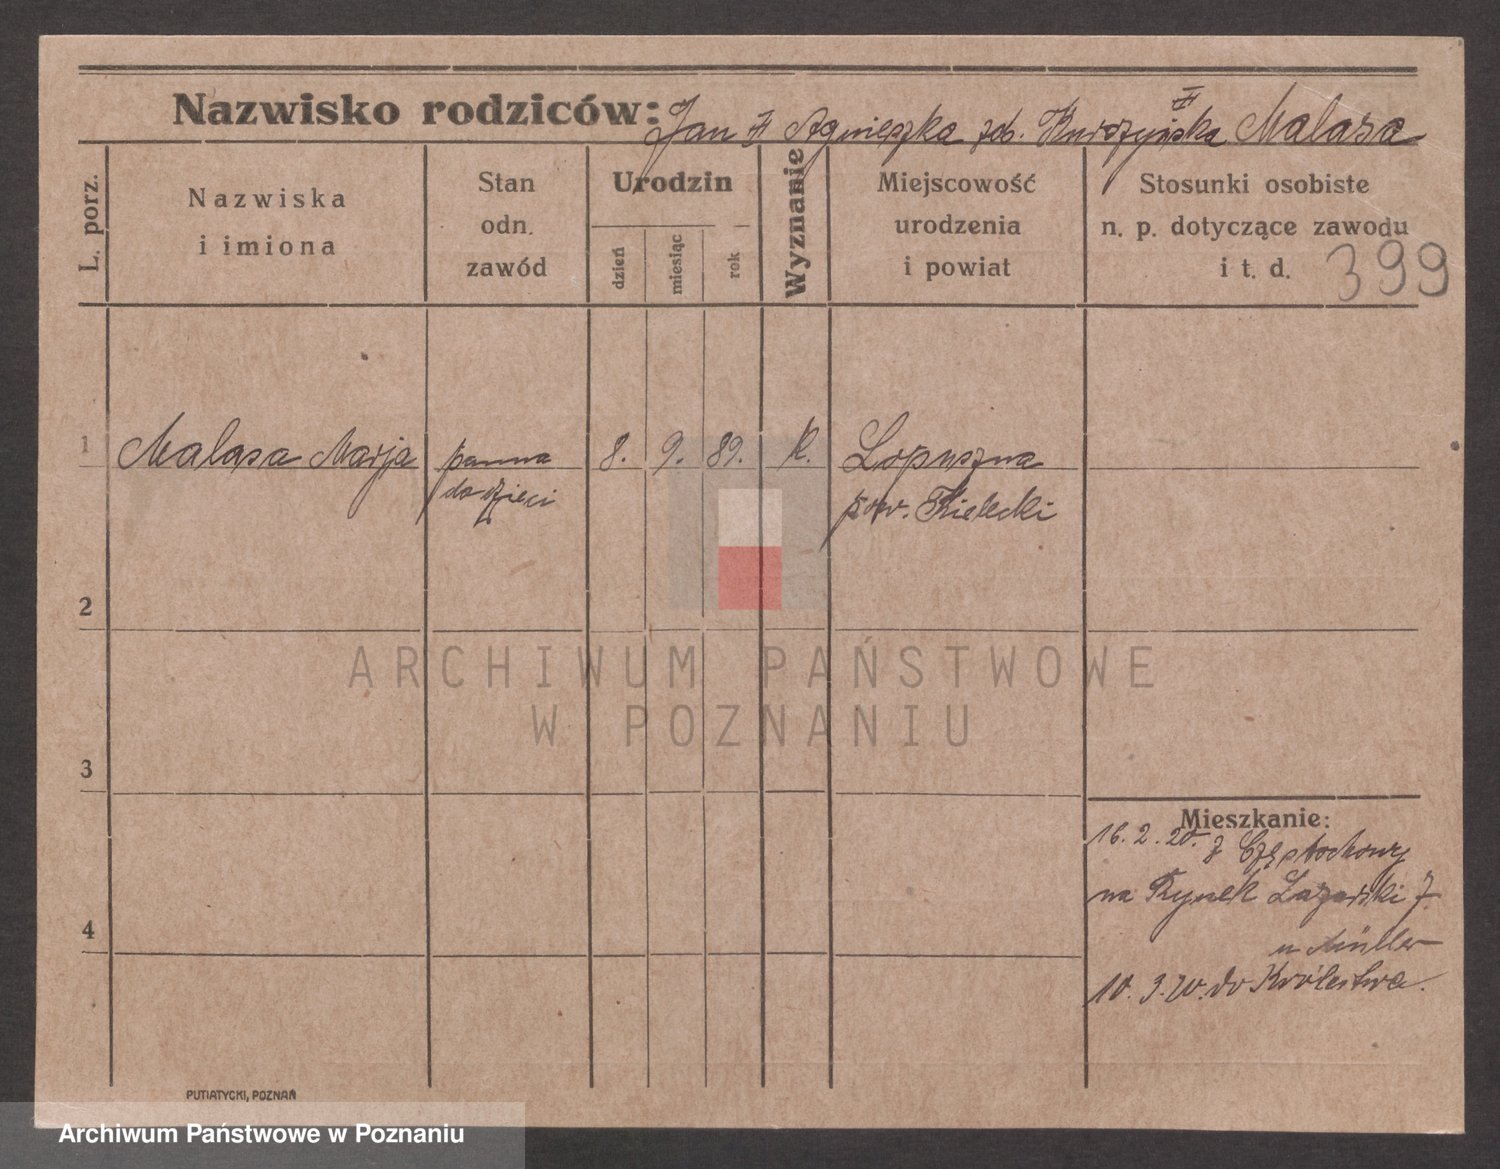 Nazwisko rodziców: Jan Agnieszka zd. Malasa
L. porz.
Nazwiska
i imiona
Stan
odn.
zawód
Urodzin
dzień
miesiąc
rok
Wyznanie
Miejscowość
urodzenia
i powiat
Stosunki osobiste
n. p. dotyczące zawodu
i t. d.
399
1
Maląsa Marja
panna
do dzieci
8.
9.
89.
K.
Łopuszna
pow. Kielecki
2
3
4
Mieszkanie:
16.2.20. z Częstochowy
na Rynek Łazarski 7.
u Müller
10.3.20. do Królestwa.
PUTIATYCKI, POZNAŃ
ARCHIWUM PAŃSTWOWE
W POZNANIU
Archiwum Państwowe w Poznaniu